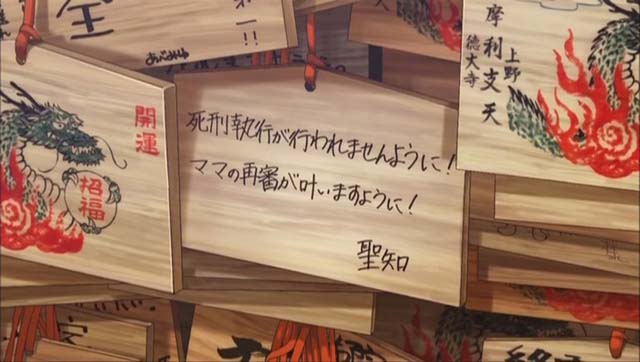 全
！！
開運
招福
死刑執行が行われませんように！
ママの再審が叶いますように！
聖知
摩利支天
上野
徳大寺